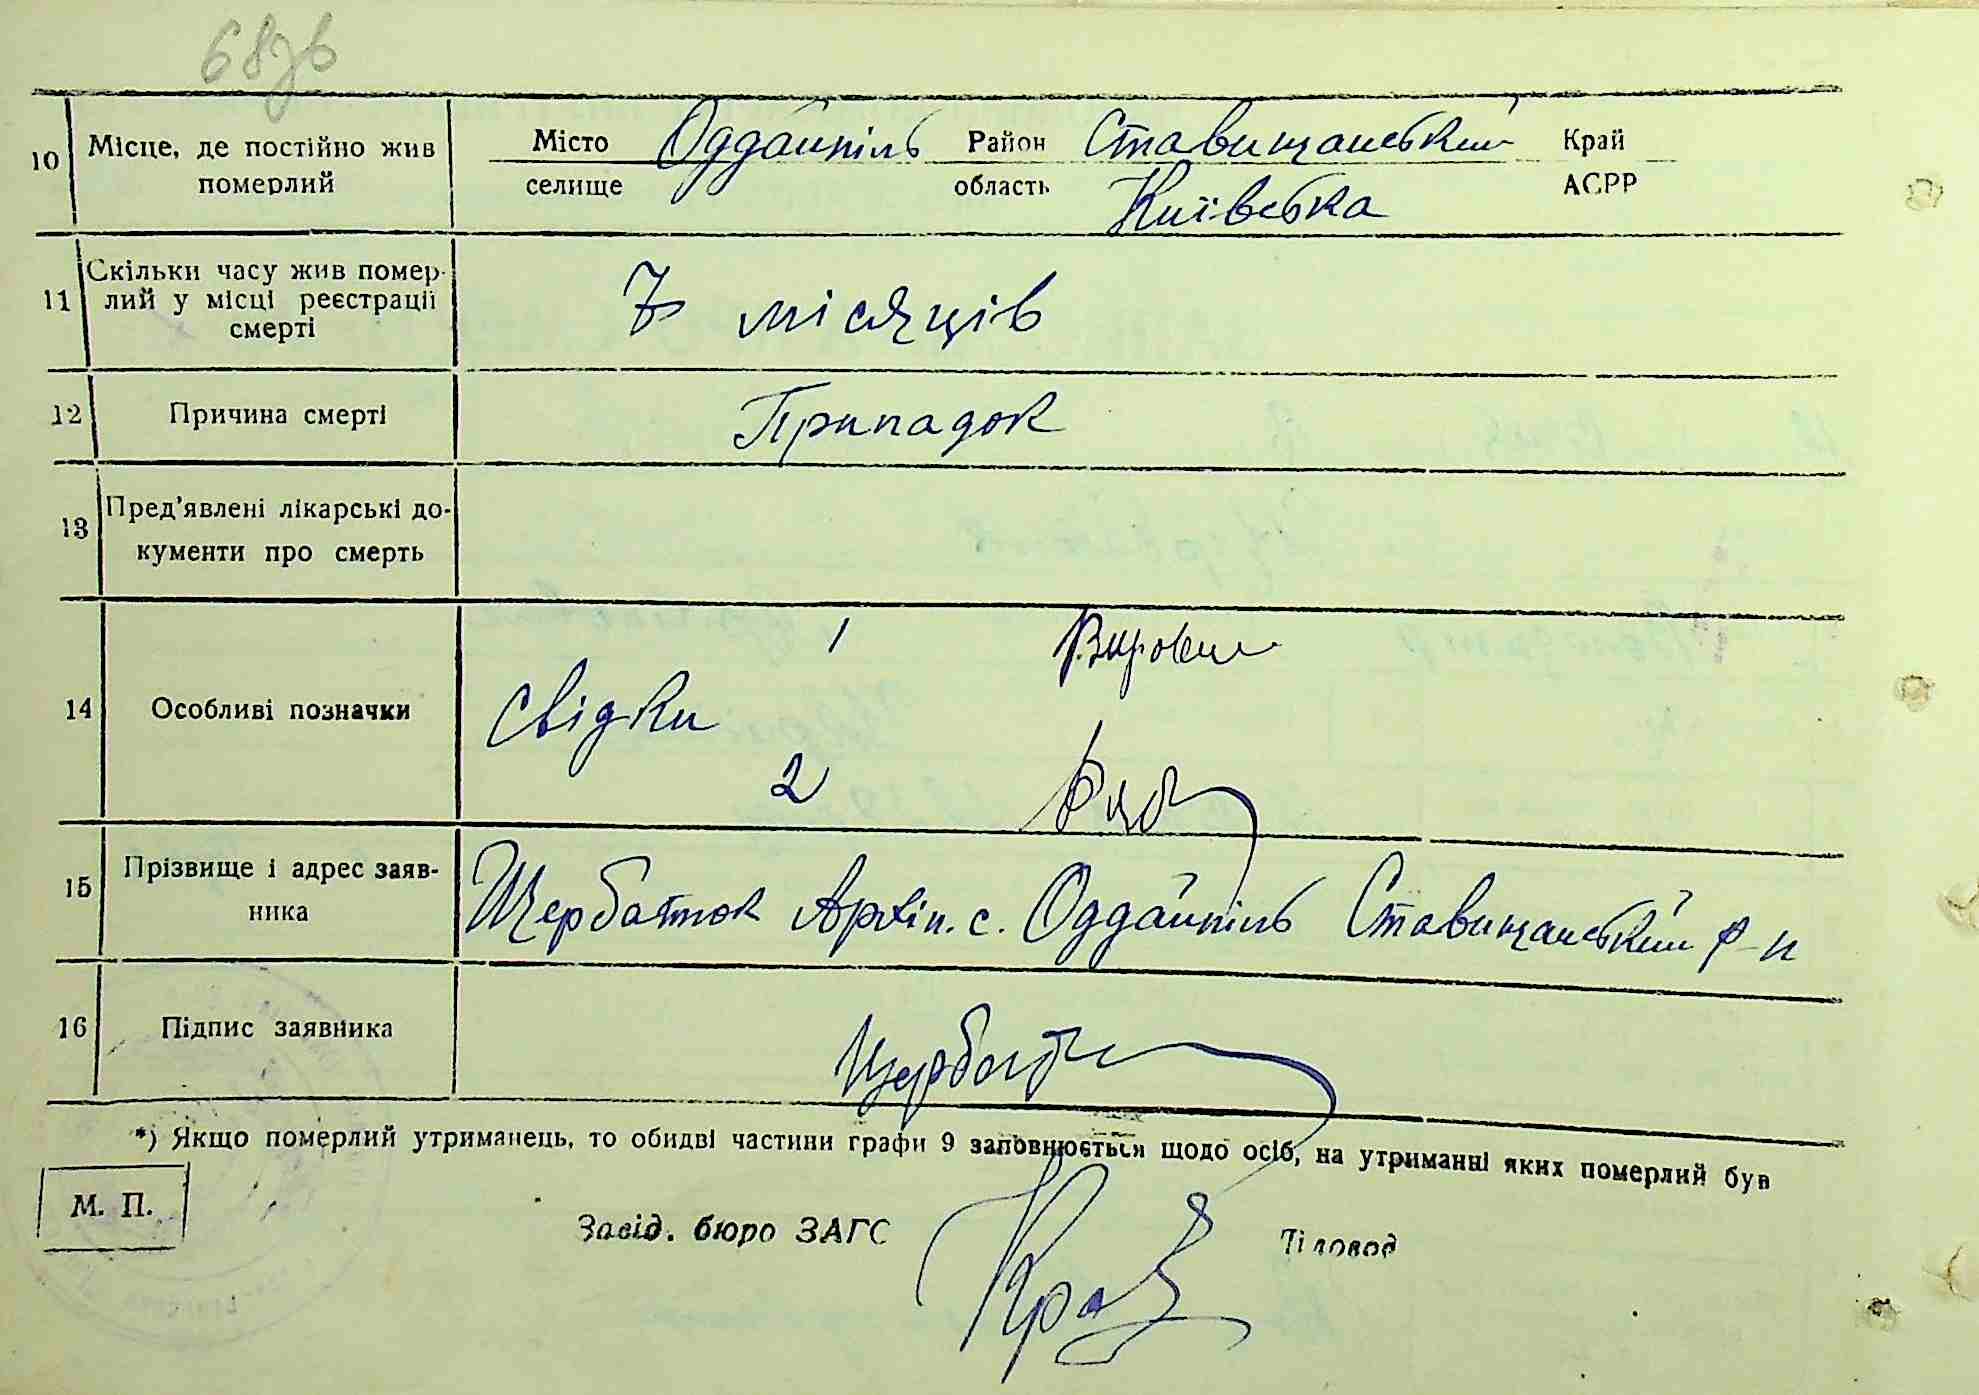 68зв
10 Місце, де постійно жив Місто Оддайпіль Район Ставищанський Край
померлий селище область Київська АСРР
Скільки часу жив помер-
11 лий у місці реєстрації 7 місяців
смерті
12 Причина смерті Припадок
Пред'явлені лікарські до-
13
кументи про смерть
1
14 Особливі позначки свідки
2
Прізвище і адрес заяв- Щербатюк Архіп. с. Оддайпіль Ставищанський р-н
15
ника
16 Підпис заявника Щербат
*) Якщо померлий утриманець, то обидві частини графи 9 заповнюється щодо осіб, на утриманні яких померлий був
М. П.
Завід. бюро ЗАГС Діловод